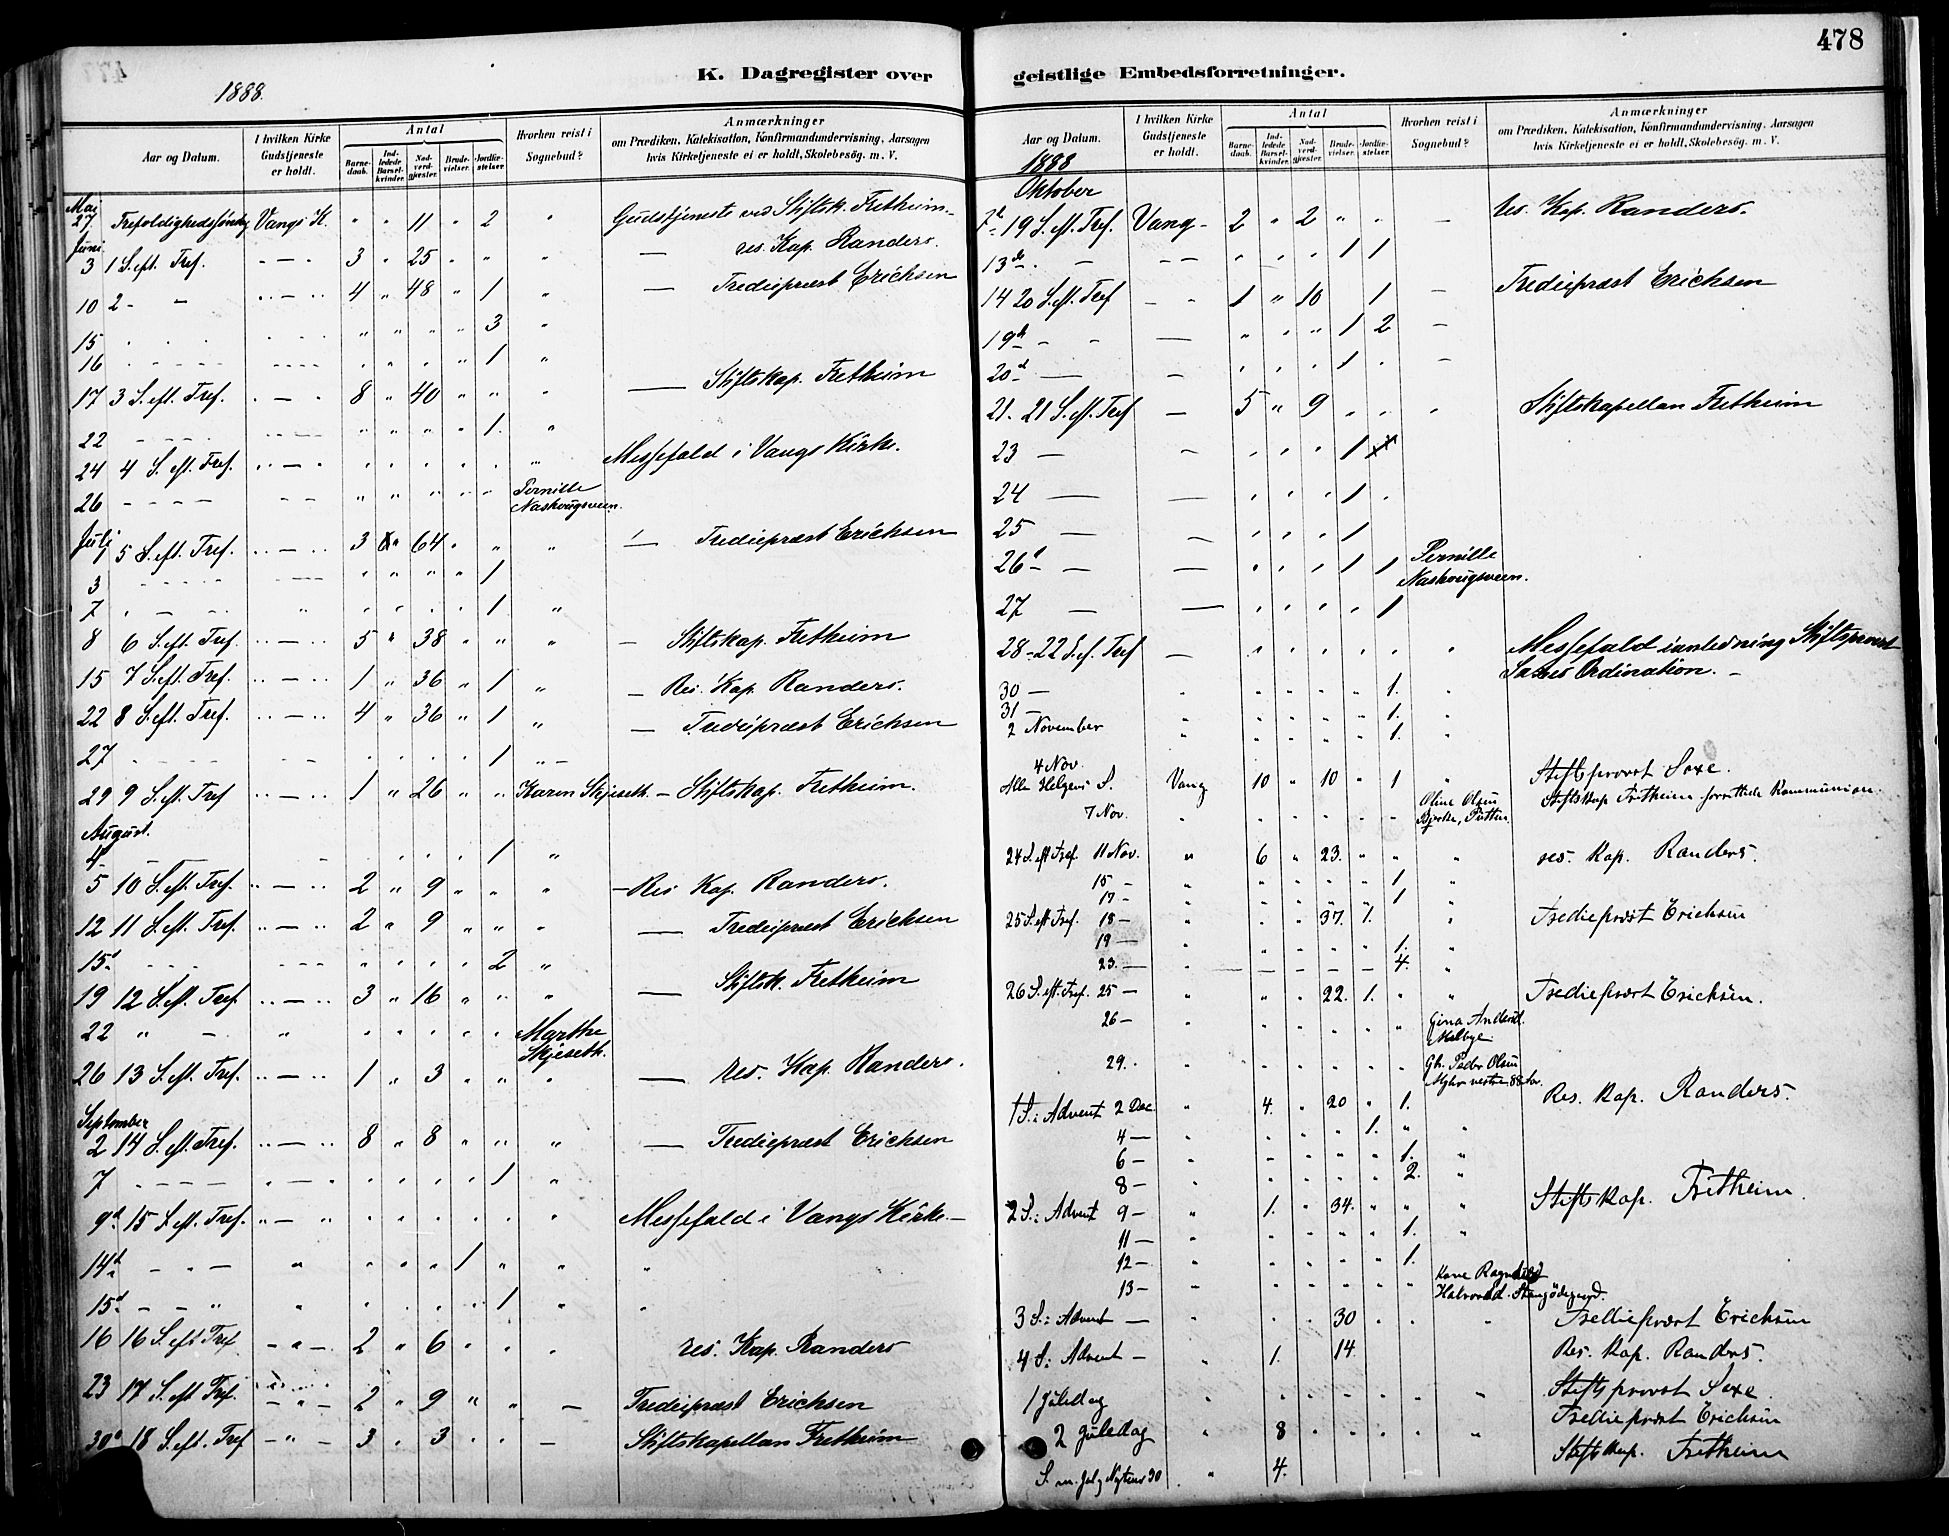 K. Dagregister over geistlige Embedsforretninger.
478
1888.
Aar og Datum. I hvilken Kirke Gudstjeneste er holdt. Antal Barnedaab. Indledede Barselkvinder. Nadverdgjæster. Brudevielser. Jordfæstelser. Hvorhen reist i Sognebud? Anmærkninger om Prædiken, Katekisation, Konfirmandundervisning, Aarsagen hvis Kirketjeneste ei er holdt, Skolebesög. m. V.
Mai
27 Trefoldighedssöndag Vangs K. " " 11 " 2 " Gudstjeneste ved Stiftsk. Fretheim
Juni
3 1 S. eft. Tref. " — " 3 " 25 " " " — res. Kap. Randers.
10 2 - - " — " 4 " 48 " 1 " — Trediepræst Erichsen
15 " " " " 3 "
16 " " " " 1 "
17 3 S. eft. Tref. " — " 8 " 40 " " " — Stiftskap. Fretheim
22 " " " " 1. "
24 4 S. eft. Tref. " — " " " " " " " Messefald i Vangs Kirke.
26 - - - - " " " " " Pernille Naskougsveen.
Juli
1 5 S. eft. Tref. " — " 3 " 64 " " " — Trediepræst Erichsen
3 - - - - " " " " 1
7 " — " " " " " " 1 "
8 6 S. eft. Tref. " — " 5 " 38 " " " — Stiftskap. Fretheim
15 7 S. eft. Tref. " — " 1 " 36 " 1 " — Res. Kap. Randers.
22 8 S. eft. Tref. " — " 4 " 36 " 1 " — Trediepræst Erichsen
27 - - - - " " " " 1 " —
29 9 S. eft. Tref " — " 1 " 26 " " Karen Skjeseth. — Stiftskap. Fretheim.
August.
4 — " " " " 1 "
5 10 S. eft. Tref. " — " 2 " 9 " " " — Res Kap. Randers.
12 11 S. eft. Tref. " — " 2 " 9 " " " — Trediepræst Erichsen
15. - - - - - - " " " " 2 "
19 12 S. eft. Tref. " — " 3 " 16 " " " — Stiftsk. Fretheim
22 " — " " " " " " Marthe Skjeseth.
26 13 S. eft. Tref. " — " 1 " 3 " " " — res. Kap. Randers.
September
2 14 S. eft. Tref. " — " 8 " 8 " " " — Trediepræst Erichsen
7 - - - - " — " " " " " 1 "
9d 15 S. eft. Tref. " — " " " " " " " Messefald i Vangs Kirke. —
14d — - — " " " " 1 " " "
15d — — " " " " " " 1 " "
16 16 S. eft Tref. — " — 2 " 6 " " " res. Kap. Randers
23 17 S. eft Tref. — " — 2 " 9 " " — Trediepræst Erichsen
30d 18 S. eft. Tref — " — 3 " 3 " " — Stiftskapellan Fretheim
Aar og Datum. I hvilken Kirke Gudstjeneste er holdt. Antal Barnedaab. Indledede Barselkvinder. Nadverdgjæster. Brudevielser. Jordfæstelser. Hvorhen reist i Sognebud? Anmærkninger om Prædiken, Katekisation, Konfirmandundervisning, Aarsagen hvis Kirketjeneste ei er holdt, Skolebesög. m. V.
1888
Oktober
7d 19 S. eft. Tref. Vang - 2 " 2 " " — res. Kap. Randers.
13de. — — — " " " 1 1
14 20 S. eft. Tref — " 1 " 10 1 — Trediepræst Erichsen
19d - - — " " " 1 2 —
20d — — " " " 1 " —
21. 21 S. eft. Tref — 5 " 9 " " " Stiftskapellan Fretheim
23 — — " " " 1
24 — — " " " 1 "
25 — — " " " 1
26d — — " " " 1 1 Pernille Naskougsveen.
27 — — " " " " 1
28 - 22 S. ef. Tref — " " " " " " Messefald i anledning Stiftsprovst Saxes Ordination. —
30 — " " " " " 1. "
31 — " " " " " 1. "
2 November " " " " " 1. "
4 Nov.
Alle Helgens S. Vang 10 " 10 " 1 " Stiftsprovst Saxe.
Stiftskap Fretheim forrettede Kommunion.
7 Nov. " " " " " " Oline Olsen Bjerke,
24 S. eft Tref. 11 Nov. " 6 " 23. " " " res. Kap. Randers.
15 — " " " " " 1 "
17 — " " " " " 1 "
25 S. eft Tref. 18 — " " " 37. 1. " Trediepræst Erichsen
19 — " " " " " 1. "
23. — " — — — — 4. "
26 S. eft. Tref. 25 — " " " 22. 1. " " Trediepræst Erichsen.
26 — " " " " " " Gina Andersd. Melbye
29. " " " " " " Gh. Peder Olsen
1 S. i Advent 2 Dec. " 4. " 20 " 1. Res. Kap. Randers.
4 — " " " " 1. " "
6 — " " " " " 1. "
8 — " " " " " 2. "
2 S. i Advent 9 — " 1. " 34. " " " Stiftskap. Fretheim.
11 — " " " " " 1. "
12 — " " " " " 1.
13 — " " " " " " Kone Ragnhild Halvorsd.
3 S. i Advent — " " " 30 " " " Trediepræst Erichsen
4 S. i Advent — " 1. " 14. Res. Kap. Randers.
1 Juledag " " " " " " " Stiftsprovst Saxe.
Trediepræst Erichsen
2 Juledag " 8 " " " " " Stiftskap. Fretheim
S. m. Jul og Nytaar 30 " 4.